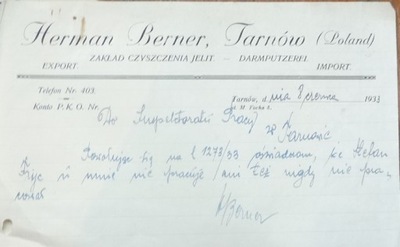 Herman Berner, Tarnów (Poland)
ZAKŁAD CZYSZCZENIA JELIT - DARMPUTZEREI
EXPORT IMPORT
Telefon Nr. 403.
Konto P.K.O. Nr.
Tarnów, dnia 8 czerwca 1933
Do Inspektoratu Pracy
w Tarnowie
Powołując się na l 1273/33 oświadczam, że Stefan
Fryc u mnie nie pracuje ani też nigdy nie pra
cował
HBerner